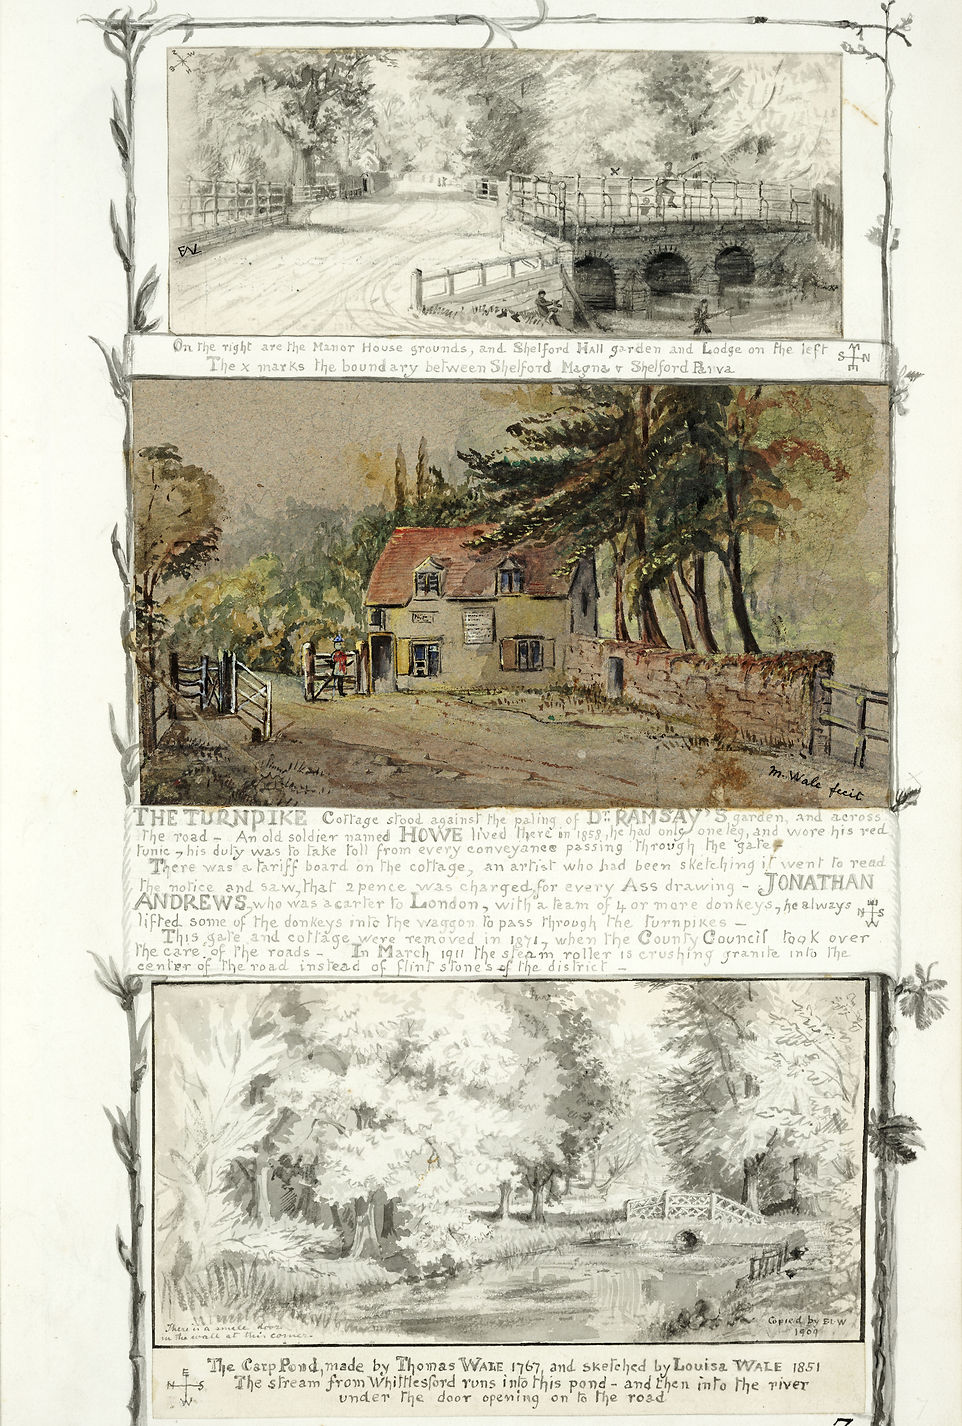 EW
On the right are the Manor House grounds, and Shelford Hall garden and Lodge on the left
S N E
The x marks the boundary between Shelford Magna & Shelford Parva
M. Wale fecit
THE TURNPIKE Cottage stood against the paling of Dr. RAMSAY'S garden, and across
the road - An old soldier named HOWE lived there in 1858, he had only one leg, and wore his red
tunic, his duty was to take toll from every conveyance passing through the gate
There was a tariff board on the cottage, an artist who had been sketching it went to read
the notice and saw, that 2 pence was charged for every Ass drawing - JONATHAN
ANDREWS, who was a carter to London, with a team of 4 or more donkeys, he always
lifted some of the donkeys into the waggon to pass through the turnpikes -
N S W
This gate and cottage were removed in 1871, when the County Council took over
the care of the roads - In March 1911 the steam roller is crushing granite into the
center of the road instead of flint stones of the district -
There is a smile door
in the wall at this corner-
Copied by ELW
1909
The Carp Pond, made by Thomas WALE 1767, and sketched by Louisa WALE 1851
E N S W
The stream from Whittlesford runs into this pond - and then into the river
under the door opening on to the road